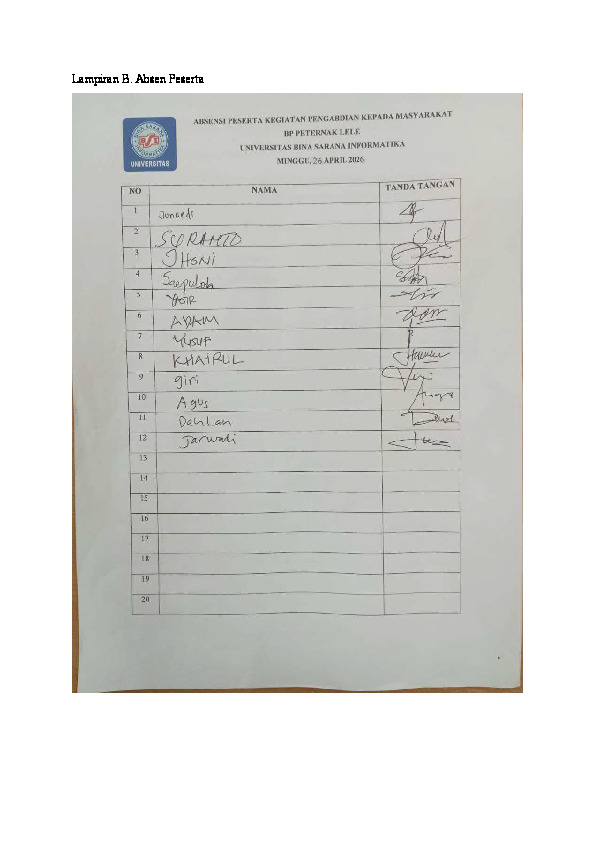 Lampiran B. Absen Peserta
ABSENSI PESERTA KEGIATAN PENGABDIAN KEPADA MASYARAKAT
BP PETERNAK LELE
UNIVERSITAS BINA SARANA INFORMATIKA
MINGGU, 26 APRIL 2026
UNIVERSITAS
NO NAMA TANDA TANGAN
1 Junaedi
2 SURANTO
3 JHONI
4 Saepuloh
5
6 ADAM
7 YUSUF
8 KHAIRUL
9 giri
10 Agus
11 Dahlan
12 Jarwadi
13
14
15
16
17
18
19
20